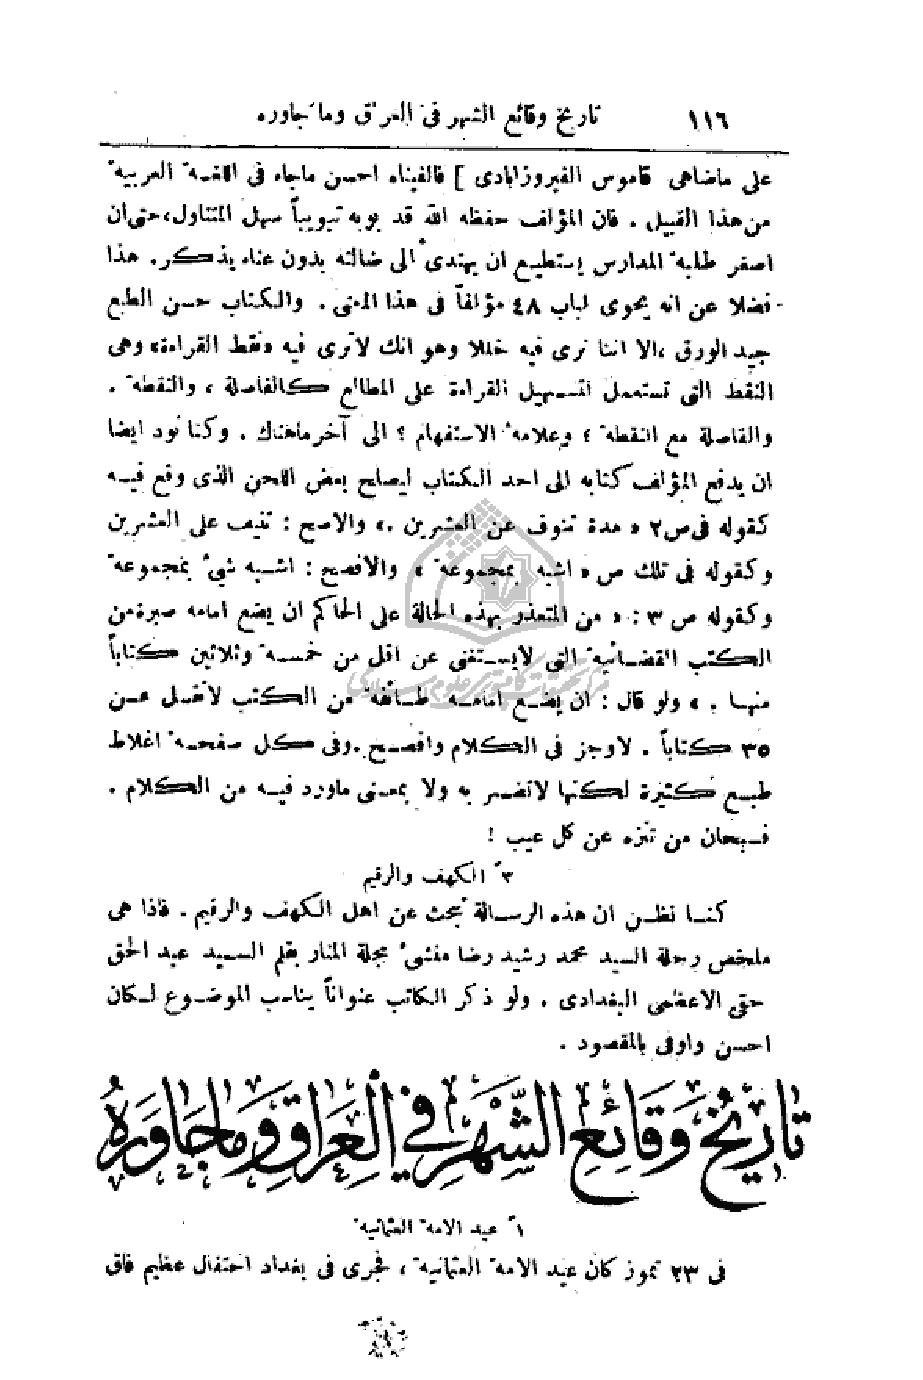 ١١٦ تاريخ وقائع الشهر في العراق وما جاوره
على ماضاهى قاموس الفيروزابادى ] فالفيناه احسن ماجاء فى اللغة العربية
من هذا القبيل . فان المؤلف حفظه الله قد بوبه تبويباً سهل المتناول، حتى ان
اصغر طلبة المدارس يستطيع ان يهتدى الى ضالته بدون عناء يذكر. هذا
فضلا عن انه يحوى لباب ٤٨ مؤلفاً فى هذا المعنى . والكتاب حسن الطبع
جيد الورق ،الا اننا نرى فيه خللا وهو انك لا ترى فيه «نقط القراءة» وهى
النقط التى تستعمل لتسهيل القراءة على المطالع كالفاصلة ، والنقطة .
والفاصلة مع النقطة ؛ وعلامة الاستفهام ؟ الى آخر ماهناك . وكنا نود ايضا
ان يدفع المؤلف كتابه الى احد الكتاب ليصلح بعض اللحن الذى وقع فيه
كقوله فى ص٢ « مدة تنوف عن العشرين .» والاصح : تنيف على العشرين
وكقوله فى تلك ص « اشبه بمجموعة » والافصح : اشبه شئ بمجموعة
وكقوله ص ٣ : « من المتعذر بهذه الحالة على الحاكم ان يضع امامه صبرة من
الكتب القضائية التى لايستغنى عن اقل من خمسة وثلاثين كتاباً
منها . » ولو قال : ان يضع امامه طائفة من الكتب لا تقل عن
٣٥ كتاباً . لاوجز فى الكلام وافصح .وفى كل صفحة اغلاط
طبع كثيرة لكنها لاتضر به ولا بمعنى ماورد فيه من الكلام .
فسبحان من تنزه عن كل عيب !
٣ً الكهف والرقيم
كنا نظن ان هذه الرسالة تبحث عن اهل الكهف والرقيم . فاذا هى
ملخص رحلة السيد محمد رشيد رضا منشئ مجلة المنار بقلم السيد عبد الحق
حقى الاعظمى البغدادى . ولو ذكر الكاتب عنواناً يناسب الموضوع لكان
احسن واوفى بالمقصود .
تاريخ وقائع الشهر في العراق وما جاوره
١ً عيد الامة العثمانية
فى ٢٣ تموز كان عيد الامة العثمانية ، فجرى فى بغداد احتفال عظيم فاق